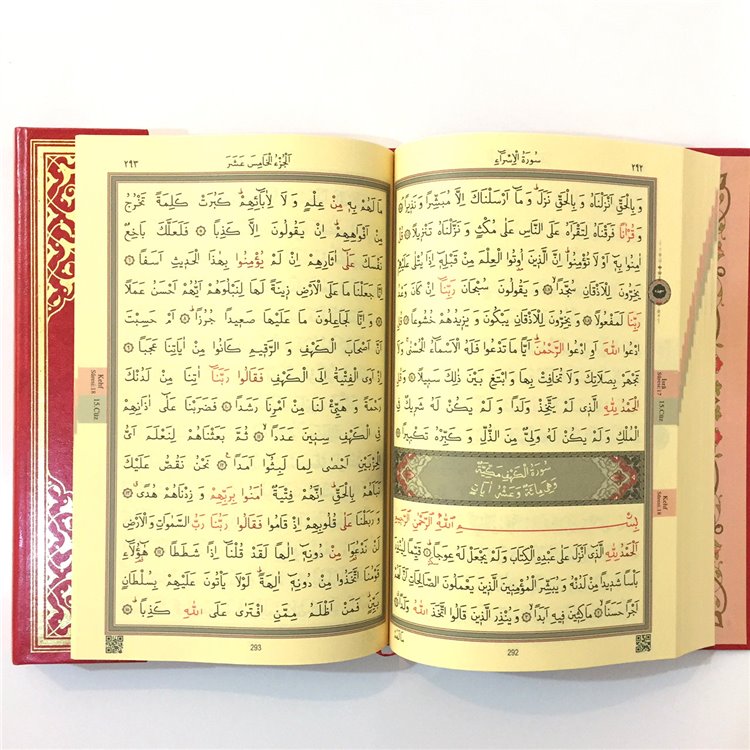 ٢٩٢
سُورَةُ الْاِسْرَاءِ
وَ بِالْحَقِّ اَنْزَلْنَاهُ وَ بِالْحَقِّ نَزَلَ وَ مَٓا اَرْسَلْنَاكَ اِلَّا مُبَشِّرًا وَ نَذِيرًا
وَ قُرْاٰنًا فَرَقْنَاهُ لِتَقْرَاَهُ عَلَى النَّاسِ عَلٰى مُكْثٍ وَ نَزَّلْنَاهُ تَنْزِيلًا قُلْ
اٰمِنُوا بِهِٓ اَوْ لَا تُؤْمِنُوا اِنَّ الَّذِينَ اُوتُوا الْعِلْمَ مِنْ قَبْلِهِٓ اِذَا يُتْلٰى عَلَيْهِمْ
يَخِرُّونَ لِلْاَذْقَانِ سُجَّدًا وَ يَقُولُونَ سُبْحَانَ رَبِّنَٓا اِنْ كَانَ وَعْدُ
رَبِّنَا لَمَفْعُولًا وَ يَخِرُّونَ لِلْاَذْقَانِ يَبْكُونَ وَ يَزِيدُهُمْ خُشُوعًا قُلِ
ادْعُوا اللّٰهَ اَوِ ادْعُوا الرَّحْمٰنَ اَيًّا مَا تَدْعُوا فَلَهُ الْاَسْمَٓاءُ الْحُسْنٰى وَ لَا
تَجْهَرْ بِصَلَاتِكَ وَ لَا تُخَافِتْ بِهَا وَ ابْتَغِ بَيْنَ ذٰلِكَ سَبِيلًا وَ قُلِ
الْحَمْدُ لِلّٰهِ الَّذِى لَمْ يَتَّخِذْ وَلَدًا وَ لَمْ يَكُنْ لَهُ شَرِيكٌ فِى
الْمُلْكِ وَ لَمْ يَكُنْ لَهُ وَلِىٌّ مِنَ الذُّلِّ وَ كَبِّرْهُ تَكْبِيرًا
سُورَةُ الْكَهْفِ مَكِّيَّةٌ
وَهِىَ مِائَةٌ وَ عَشْرُ اٰيَاتٍ
بِسْمِ اللّٰهِ الرَّحْمٰنِ الرَّحِيمِ
الْحَمْدُ لِلّٰهِ الَّذِٓى اَنْزَلَ عَلٰى عَبْدِهِ الْكِتَابَ وَ لَمْ يَجْعَلْ لَهُ عِوَجًا قَيِّمًا لِيُنْذِرَ
بَاْسًا شَدِيدًا مِنْ لَدُنْهُ وَ يُبَشِّرَ الْمُؤْمِنِينَ الَّذِينَ يَعْمَلُونَ الصَّالِحَاتِ اَنَّ لَهُمْ
اَجْرًا حَسَنًا مَاكِثِينَ فِيهِ اَبَدًا وَ يُنْذِرَ الَّذِينَ قَالُوا اتَّخَذَ اللّٰهُ وَلَدًا
İsrâ
Sûresi:17
15.Cüz
Kehf
Sûresi:18
292
اَلْجُزْءُ الْخَامِسَ عَشَرَ
٢٩٣
مَا لَهُمْ بِهِ مِنْ عِلْمٍ وَ لَا لِاٰبَٓائِهِمْ كَبُرَتْ كَلِمَةً تَخْرُجُ
مِنْ اَفْوَاهِهِمْ اِنْ يَقُولُونَ اِلَّا كَذِبًا فَلَعَلَّكَ بَاخِعٌ
نَفْسَكَ عَلٰٓى اٰثَارِهِمْ اِنْ لَمْ يُؤْمِنُوا بِهٰذَا الْحَدِيثِ اَسَفًا
اِنَّا جَعَلْنَا مَا عَلَى الْاَرْضِ زِينَةً لَهَا لِنَبْلُوَهُمْ اَيُّهُمْ اَحْسَنُ عَمَلًا
وَ اِنَّا لَجَاعِلُونَ مَا عَلَيْهَا صَعِيدًا جُرُزًا اَمْ حَسِبْتَ
اَنَّ اَصْحَابَ الْكَهْفِ وَ الرَّقِيمِ كَانُوا مِنْ اٰيَاتِنَا عَجَبًا
اِذْ اَوَى الْفِتْيَةُ اِلَى الْكَهْفِ فَقَالُوا رَبَّنَٓا اٰتِنَا مِنْ لَدُنْكَ
رَحْمَةً وَ هَيِّئْ لَنَا مِنْ اَمْرِنَا رَشَدًا فَضَرَبْنَا عَلٰٓى اٰذَانِهِمْ
فِى الْكَهْفِ سِنِينَ عَدَدًا ثُمَّ بَعَثْنَاهُمْ لِنَعْلَمَ اَىُّ
الْحِزْبَيْنِ اَحْصٰى لِمَا لَبِثُٓوا اَمَدًا نَحْنُ نَقُصُّ عَلَيْكَ
نَبَاَهُمْ بِالْحَقِّ اِنَّهُمْ فِتْيَةٌ اٰمَنُوا بِرَبِّهِمْ وَ زِدْنَاهُمْ هُدًى
وَ رَبَطْنَا عَلٰى قُلُوبِهِمْ اِذْ قَامُوا فَقَالُوا رَبُّنَا رَبُّ السَّمٰوَاتِ وَ الْاَرْضِ
لَنْ نَدْعُوَا مِنْ دُونِهِٓ اِلٰهًا لَقَدْ قُلْنَٓا اِذًا شَطَطًا هٰٓؤُلَٓاءِ
قَوْمُنَا اتَّخَذُوا مِنْ دُونِهِٓ اٰلِهَةً لَوْلَا يَاْتُونَ عَلَيْهِمْ بِسُلْطَانٍ
بَيِّنٍ فَمَنْ اَظْلَمُ مِمَّنِ افْتَرٰى عَلَى اللّٰهِ كَذِبًا
Kehf
Sûresi:18
15.Cüz
293